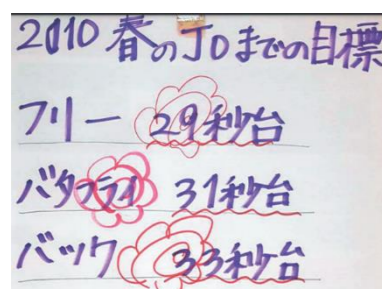 2010 春のJOまでの目標
フリー 29秒台
バタフライ 31秒台
バック 33秒台